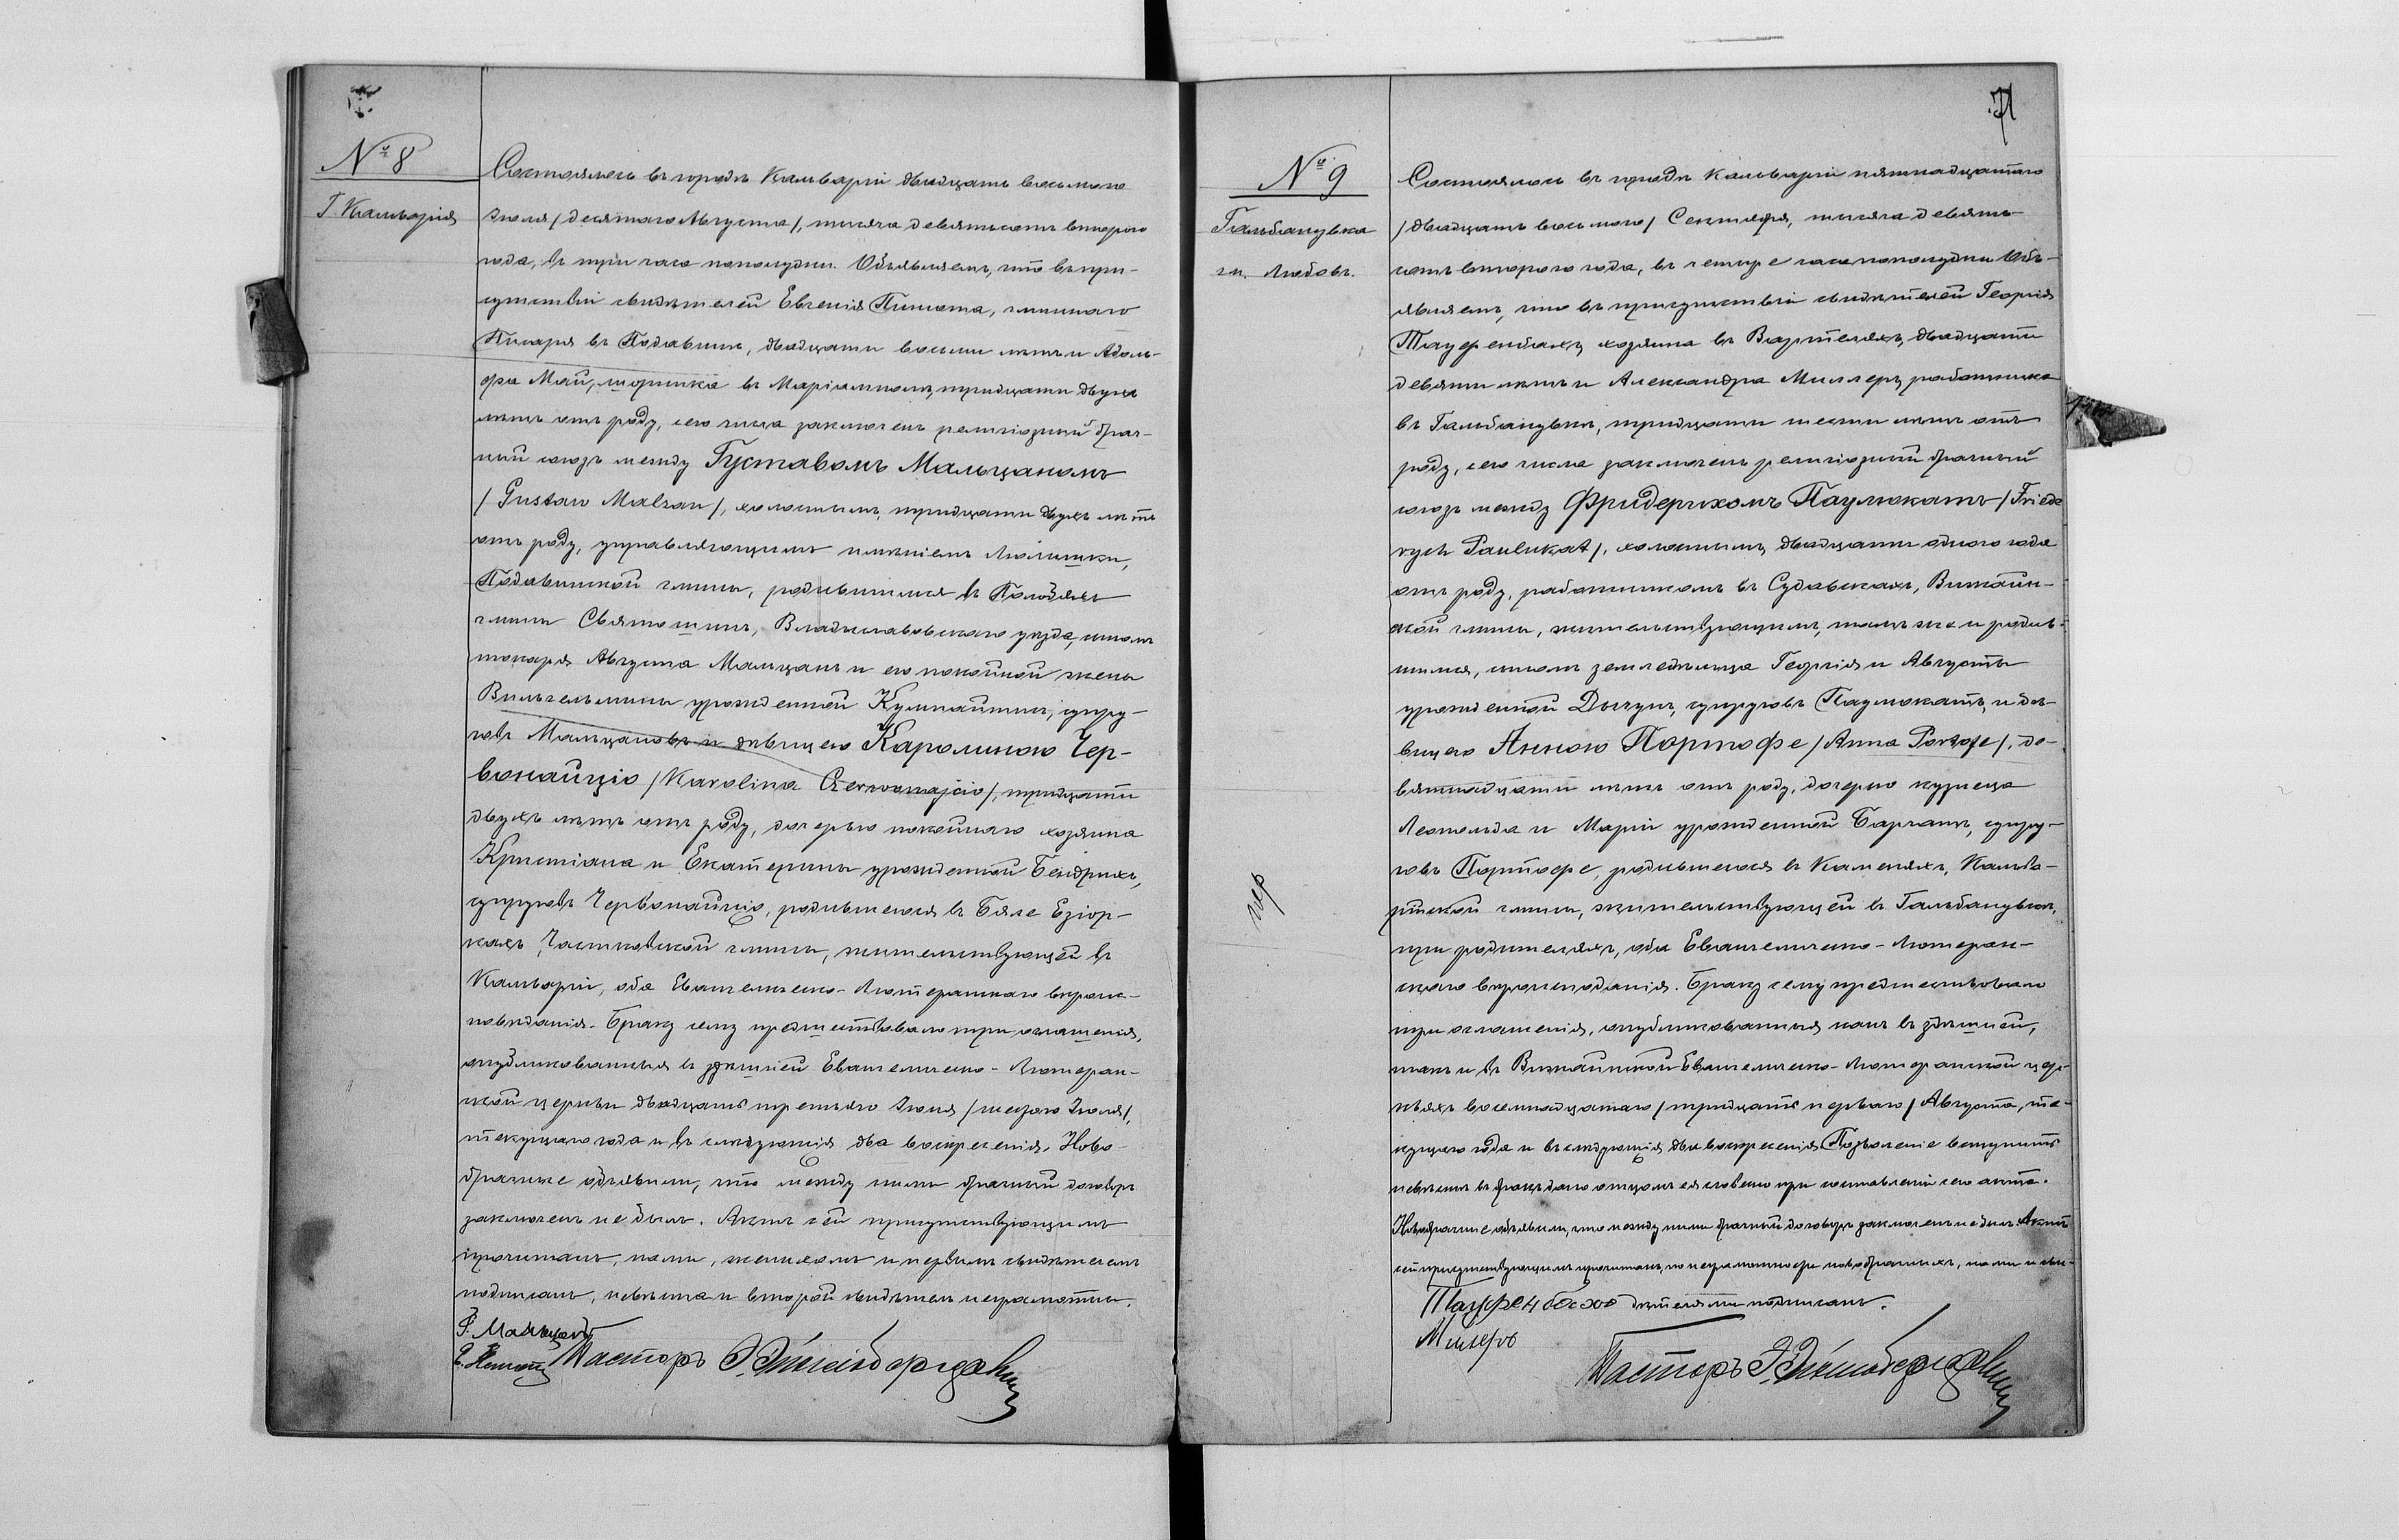 № 8
Г. Кальварія
Состоялось въ городѣ Кальваріи двадцать восьмого
Іюля /десятаго Августа/, тысяча девятьсотъ второго
года, въ три часа пополудни. Объявляемъ, что въ при-
сутствіи свидѣтелей Евгенія, гминнаго
Писаря въ Подавинѣ, двадцати восьми лѣтъ и Адоль-
фа Май, шорника въ Маріамполѣ, тридцати двухъ
лѣтъ отъ роду, сего числа заключенъ религіозный брач-
ный союзъ между Густавомъ Мальцаномъ
/Gustaw Malzan/, холостымъ, тридцати двухъ лѣтъ
отъ роду, управляющимъ имѣніемъ,
Подавинской гмины, родившимся въ
гмины Святошинъ, Владиславовскаго уѣзда, сыномъ
токаря Августа Мальцанъ и его покойной жены
Вильгельмины урожденной, супру-
говъ Мальцановъ и дѣвицею Каролиною Чер-
вонайціо /Karolina Czerwonajcio/, тридцати
двухъ лѣтъ отъ роду, дочерью покойнаго хозяина
Христіана и Екатерины урожденной Бендрихъ,
супруговъ Червонайціо, родившеюся въ Бяле Езіор-
кахъ, гмины, жительствующей въ
Кальваріи, оба Евангелическо-Лютеранскаго вѣроис-
повѣданія. Браку сему предшествовало три оглашенія,
опубликованныя въ здѣшней Евангелическо-Лютеран-
ской церкви двадцать третьяго Іюня /шестого Іюля/,
текущаго года и въ слѣдующія два воскресенія. Ново-
брачные объявили, что между ними брачный договоръ
заключенъ не былъ. Актъ сей присутствующимъ
прочитанъ, нами, женихомъ и первымъ свидѣтелемъ
подписанъ, невѣста и второй свидѣтель неграмотны.
Г. Мальцанъ
Пасторъ
71
№ 9
Гальбанувка
гм. Любовъ.
Состоялось въ городѣ Кальваріи пятнадцатаго
/двадцать восьмого/ Сентября, тысяча девять-
сотъ второго года, въ четыре часа пополудни. Объ-
являемъ, что въ присутствіи свидѣтелей Георгія
Тауфенбахъ, хозяина въ Вартеляхъ, двадцати
девяти лѣтъ и Александра Миллеръ, работника
въ Гальбанувкѣ, тридцати шести лѣтъ отъ
роду, сего числа заключенъ религіозный брачный
союзъ между Фридерихомъ Паулюкатъ /Friede
rych Paulukat/, холостымъ, двадцати одного года
отъ роду, работникомъ въ Судавскахъ, Вижайн-
ской гмины, жительствующимъ, тамъ же и родив-
шимся, сыномъ земледѣльца Георгія и Августы
урожденной, супруговъ Паулюкатъ, и дѣ-
вицею Анною Портофе /Anna Portofe/, де-
вятнадцати лѣтъ отъ роду, дочерью кузнеца
Леопольда и Маріи урожденной Барганъ, супру-
говъ Портофе, родившеюся въ, Кальва-
рійской гмины, жительствующей въ Гальбанувкѣ,
при родителяхъ, оба Евангелическо-Лютеран-
скаго вѣроисповѣданія. Браку сему предшествовало
три оглашенія, опубликованныя какъ въ здѣшней,
такъ и въ Вижайнской Евангелическо-Лютеранской цер-
квахъ восемнадцатаго /тридцать перваго/ Августа, те-
кущаго года и въ слѣдующія два воскресенія. Позволеніе вступить
невѣстѣ въ бракъ дано отцомъ ея словесно при составленіи сего акта.
Новобрачные объявили, что между ними брачный договоръ заключенъ не былъ. Актъ
сей присутствующимъ прочитанъ, по неграмотности новобрачныхъ, нами и сви-
дѣтелями подписанъ.
Тауфенбахъ
Милеръ
Пасторъ